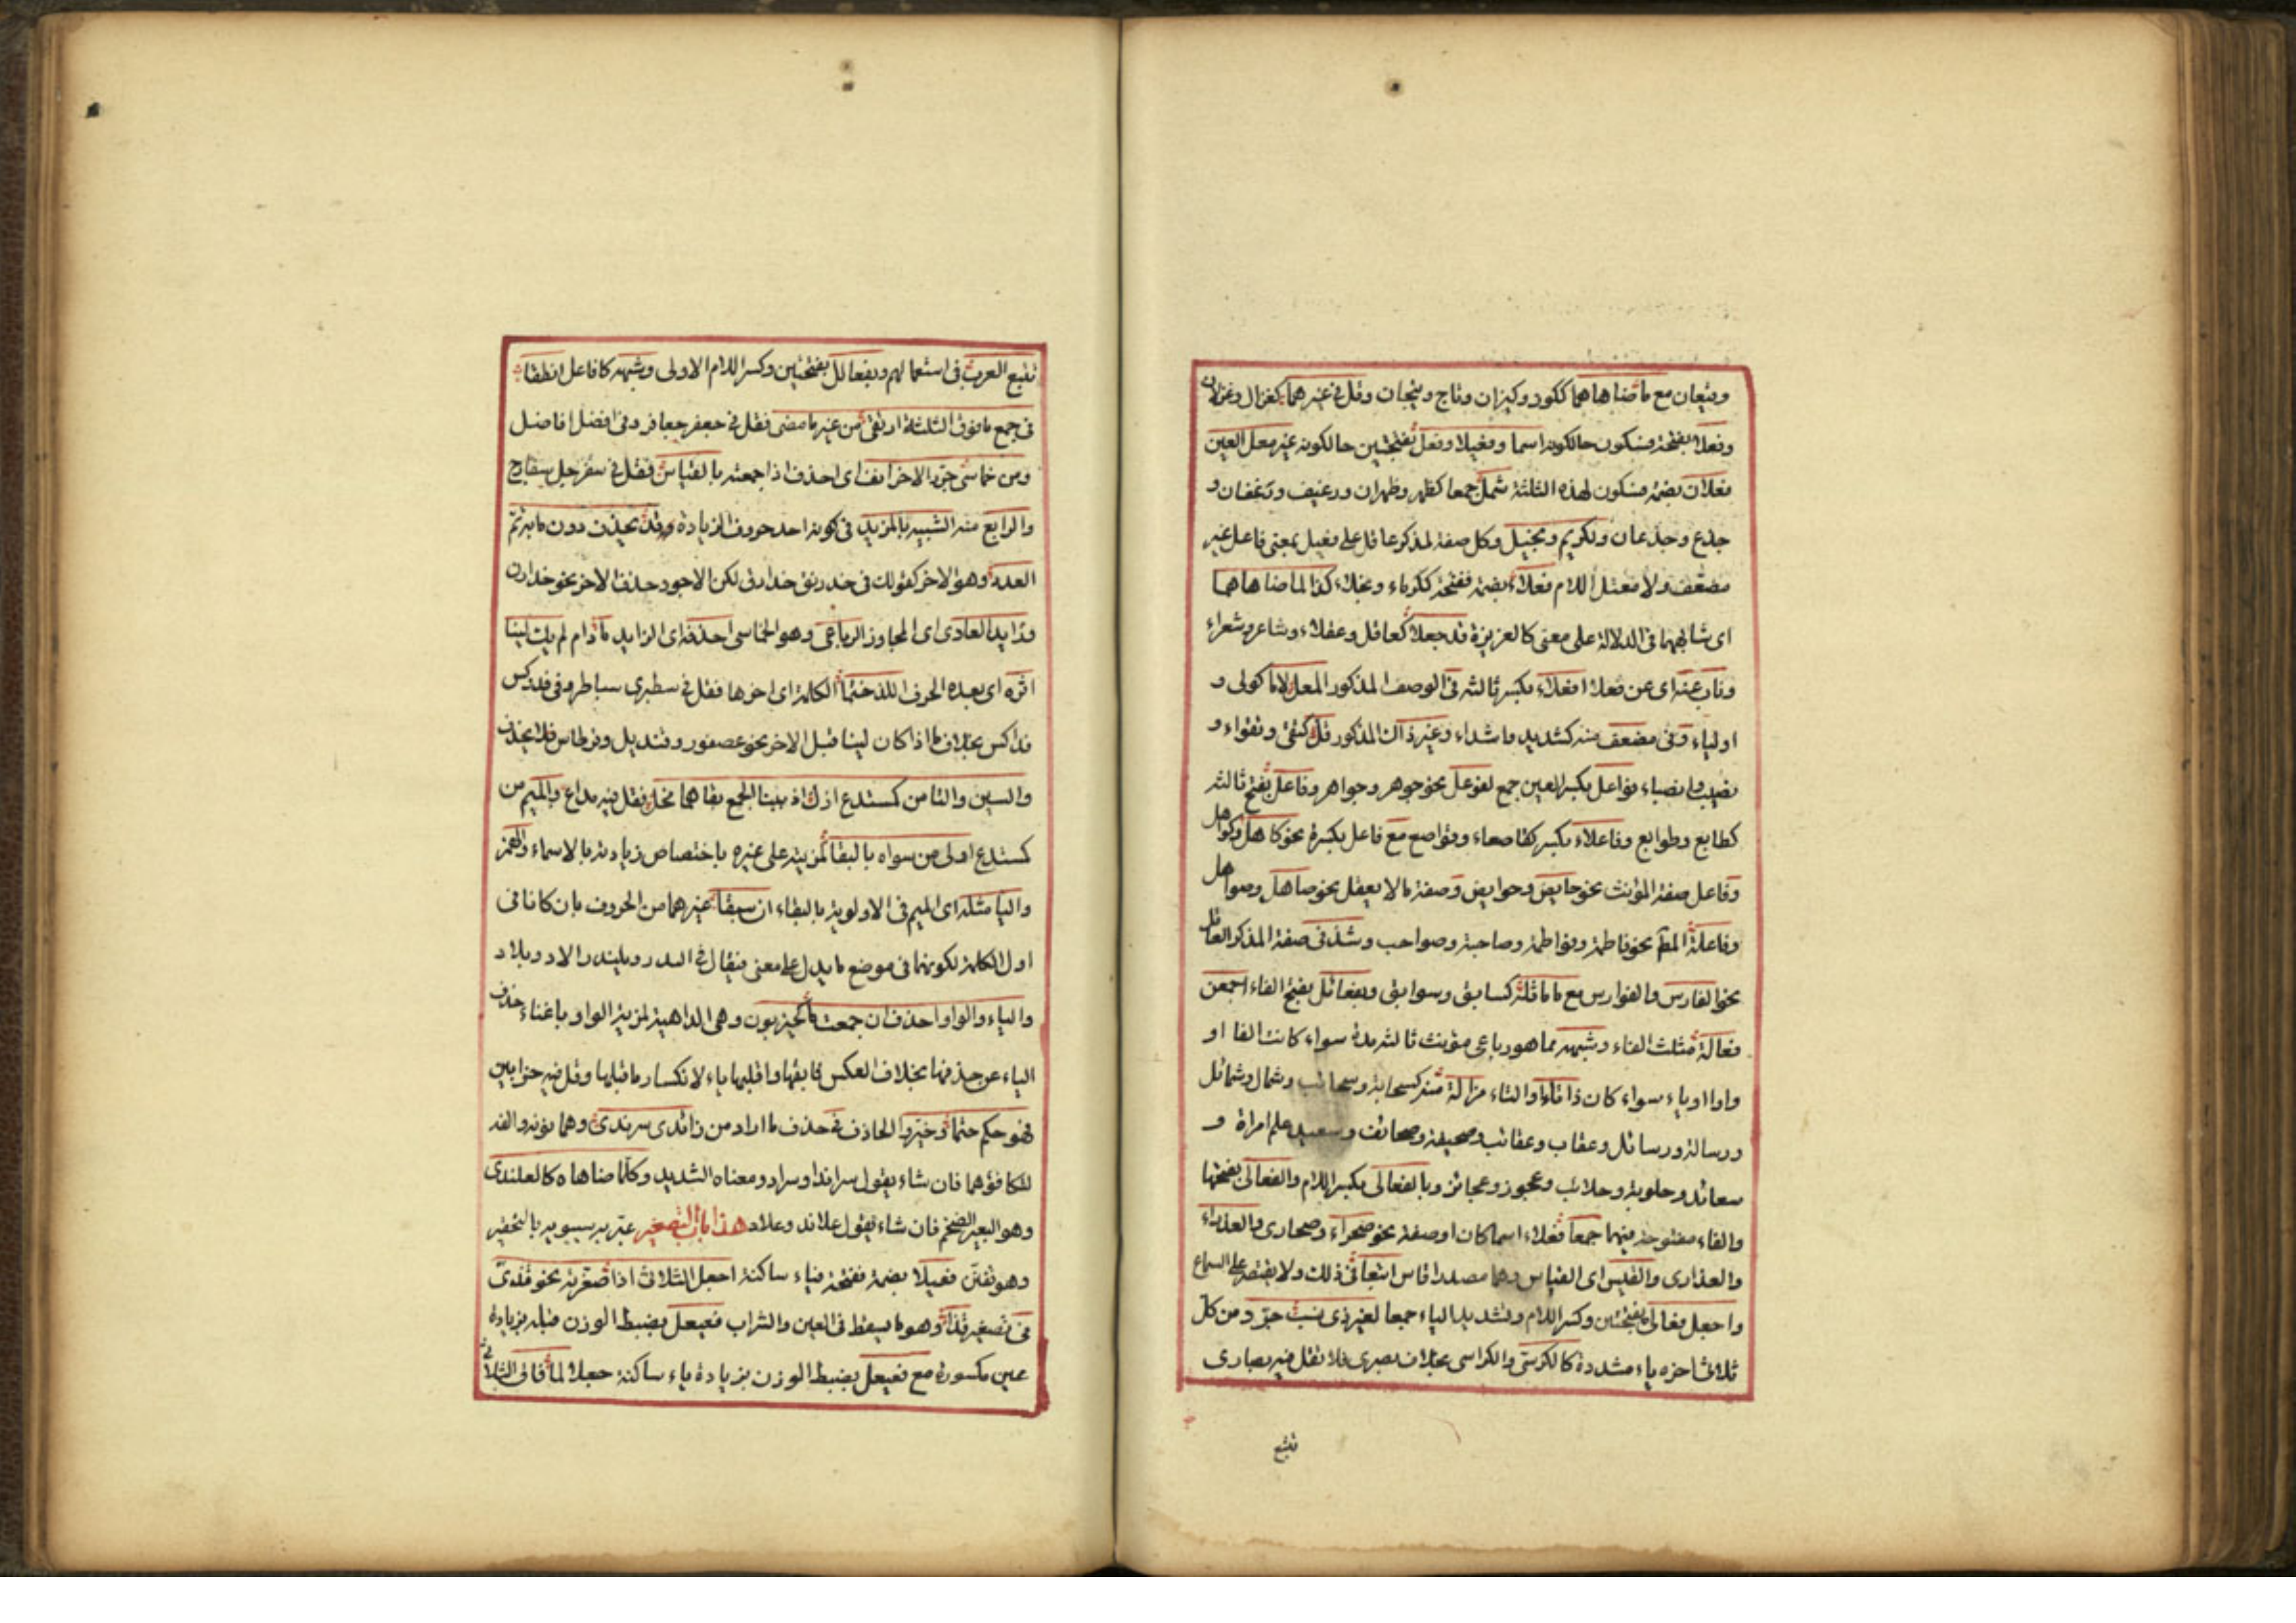 وقيعان مع ما ضاهاهما ككوز وكيزان وتاج وتيجان وقل في غيرهما كغزال وغزلان
وفعلا بفتحة فسكون حالكونه اسما وفعيلا وفعل بفتحتين حالكونه غير معل العين
فعلان بضمة فسكون لهذه الثلثة شمل جمعا كظهر وظهران ورغيف ورغفان و
جذع وجذعان ولكريم وبخيل وكل صفة لمذكر عاقل على فعيل بمعنى فاعل غير
مضعف ولا معتل اللام فعلاء بضمة ففتحة ككرماء وبخلاء كذا لما ضاهاهما
اى شابههما في الدلالة على معنى كالغريزة قد جعلا كعاقل وعقلاء وشاعر وشعراء
وناب عنه اى عن فعلاء افعلاء بكسر ثالثه في الوصف المذكور المعل لاما كولى و
اولياء وفى مضعف منه كشديد واشداء وغير ذاك المذكور قل كتقى وتقواء و
نصيب وانصباء فواعل بكسر العين جمع لفوعل نحو جوهر وجواهر وفاعل بفتح ثالثه
كطابع وطوابع وفاعلاء بكسر كقاصعاء وقواصع مع فاعل بكسرة نحو كاهل وكواهل
وفاعل صفة المؤنث نحو حايض وحوايض وصفة ما لا يعقل نحو صاهل وصواهل
وفاعلة المظ نحو فاطمة وفواطمة وصاحبة وصواحب وشذ في صفة المذكر العاقل
نحو الفارس والفوارس مع ما ماثله كسابق وسوابق وبفعائل بفتح الفاء اجمعن
فعالة مثلث الفاء وشبهه مما هو رباعى مؤنث ثالثه مدة سواء كانت الفا او
واوا او ياء سواء كان ذا تاء او التاء مزالة منه كسحابة وسحائب وشمال وشمائل
ورسالة ورسائل وعقاب وعقائب وصحيفة وصحائف وسعيد علم امراة و
سعائد وحلوبة وحلائب وعجوز وعجائز وبالفعالى بكسر اللام والفعالى بفتحها
والفاء مفتوحة فيهما جمعا فعلاء اسما كان او صفة نحو صحراء وصحارى والعذراء
والعذارى والقيس اى القياس وهما مصدرا قاس اتبعا في ذلك ولا يقتصر على السماع
واجعل فعالى بفتحتين وكسر اللام وتشديد الياء جمعا لغير ذى نسب جدد من كل
ثلاثى اخره ياء مشددة كالكرسى والكراسى بخلاف بصرى فلا تقل فيه بصارى
تتبع
تتبع العرب في استعمالهم وبفعالل بفتحتين وكسر اللام الاولى وشبهه كافاعل انطقا
في جمع ما فوق الثلثة ارتقى من غير ما مضى فقل في جعفر جعافر وفى افضل افاضل
ومن خماسى جرد الاخر انف اى احذف اذا جمعته بالقياس فقل في سفرجل سفارج
والرابع منه الشبيه بالمزيد في كونه احد حروف الزيادة وقد يحذف دون ما به تم
العدد وهو الاخر كقولك في خدرنق خدارق لكن الاجود حذف الاخر نحو خدارن
وزايد العادى اى المجاوز الرباعى وهو الخماسى احذفه اى الزايد ما دام لم يك لينا
اثره اى بعده الحرف اللذ ختما الكلمة اى اخرها فقل في سطبرى سباطر وفى فدوكس
فداكس بخلاف ما اذا كان لينا قبل الاخر نحو عصفور وقنديل وقرطاس فلا يحذف
والسين والتا من كمستدع ازل اذ ببنا الجمع بقاهما مخل فقل فيه مداع والميم من
كمستدع اولى من سواه بالبقا لمزيته على غيره باختصاص زيادته بالاسماء والهمز
واليا مثله اى الميم في الاولوية بالبقاء ان سبقا غيرهما من الحروف بان كانا في
اول الكلمة لكونهما في موضع ما يدل على معنى فيقال في الندد ويلندد الاد ويلاد
والياء لا الواو احذف ان جمعت ما كحيزبون وهى الداهية لمزية الواو باغناء حذف
الياء عن حذفها بخلاف العكس فابقها واقلبها ياء لانكسار ما قبلها وقل فيه حزابين
فهو حكم حتما وخير والحاذف في حذف ما اراد من زائدى سرندى وهما نونه والفه
لتكافؤهما فان شاء يقول سراندا وسراد ومعناه الشديد وكلما ضاهاه كالعلندى
وهو البعير الضخم فان شاء يقول علاند وعلاد هذا باب التصغير عبر به سيبويه بالتحقير
وهو تفنن فعيلا بضمة ففتحة فياء ساكنة اجعل الثلاثى اذا صغرته نحو قذى
في تصغير قذا وهو ما يسقط في العين والشراب فعيعل بضبط الوزن قبله بزيادة
عين مكسورة مع فعيعل بضبط الوزن بزيادة ياء ساكنة جعلا لما فاق الثلاثى